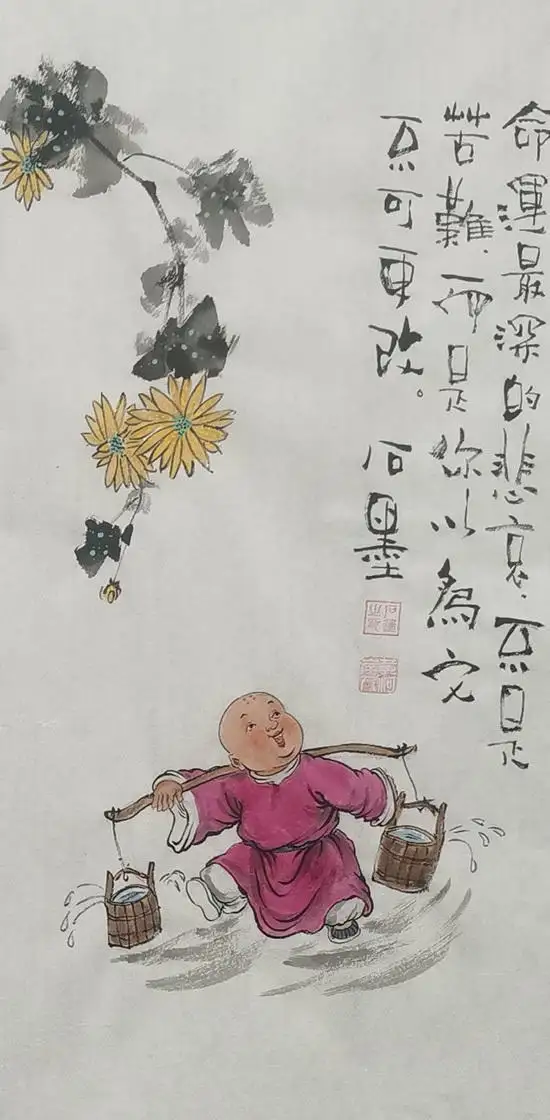 命運最深的悲哀、不是
苦難、而是你以為它
不可更改。石墨